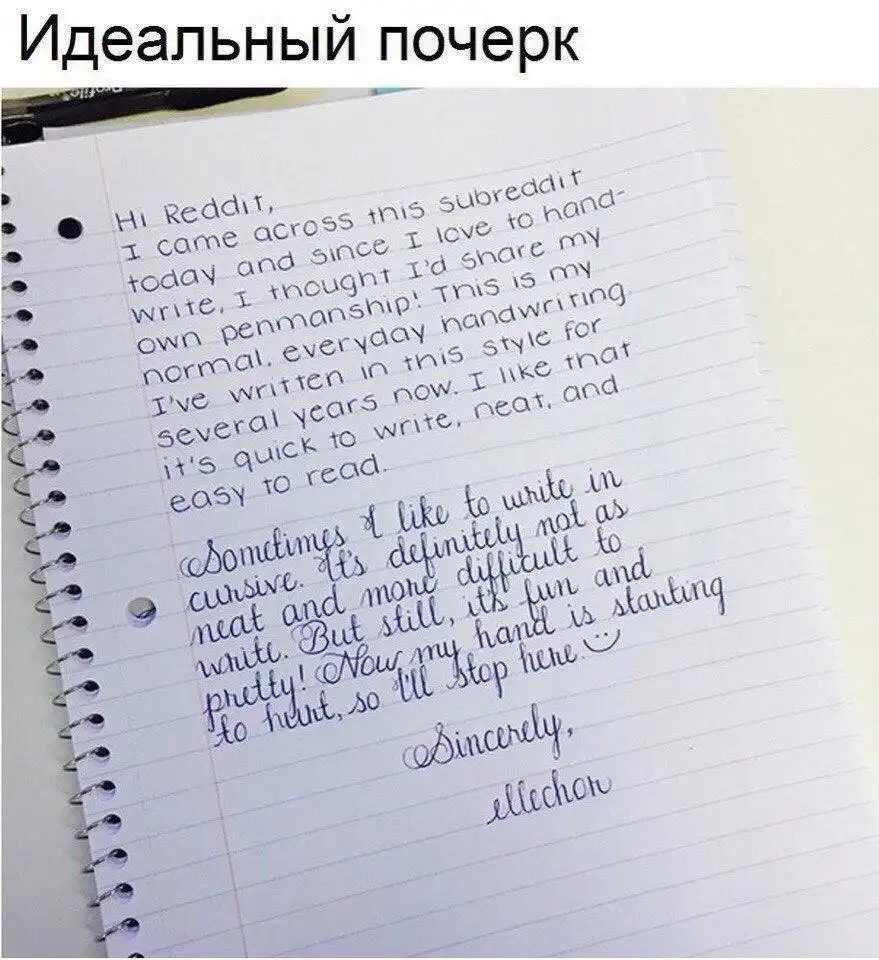 Идеальный почерк
Hi Reddit,
I came across this subreddit
today and since I love to hand-
write, I thought I'd share my
own penmanship! This is my
normal, everyday handwriting
I've written in this style for
several years now. I like that
it's quick to write, neat, and
easy to read.
Sometimes I like to write in
cursive. It's definitely not as
neat and more difficult to
write. But still, it's fun and
pretty! Now my hand is starting
to hurt, so I'll stop here
Sincerely,
ellechor